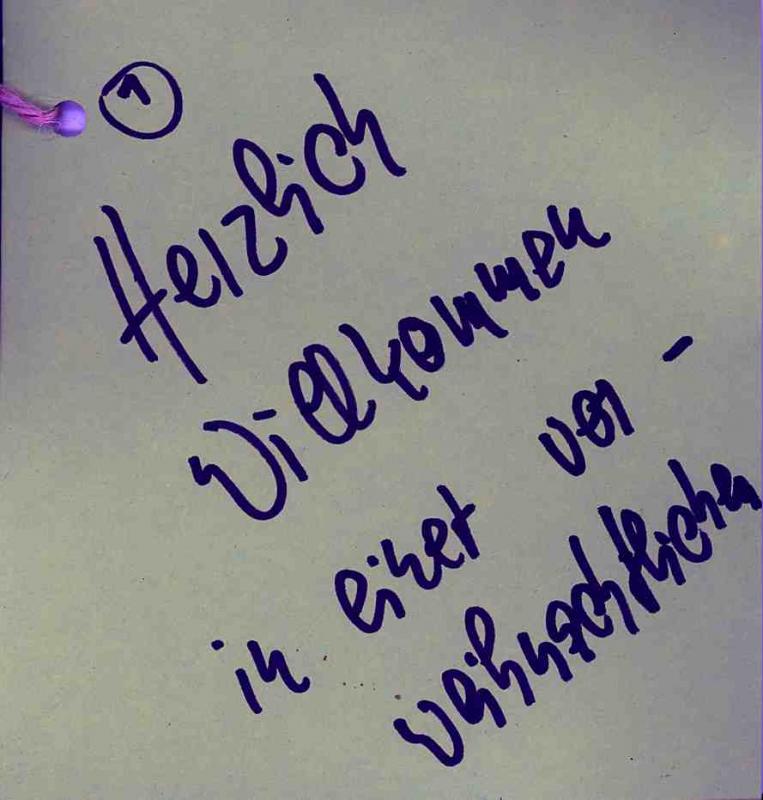 1
Herzlich
Willkommen
in einer vor-
weihnachtlichen